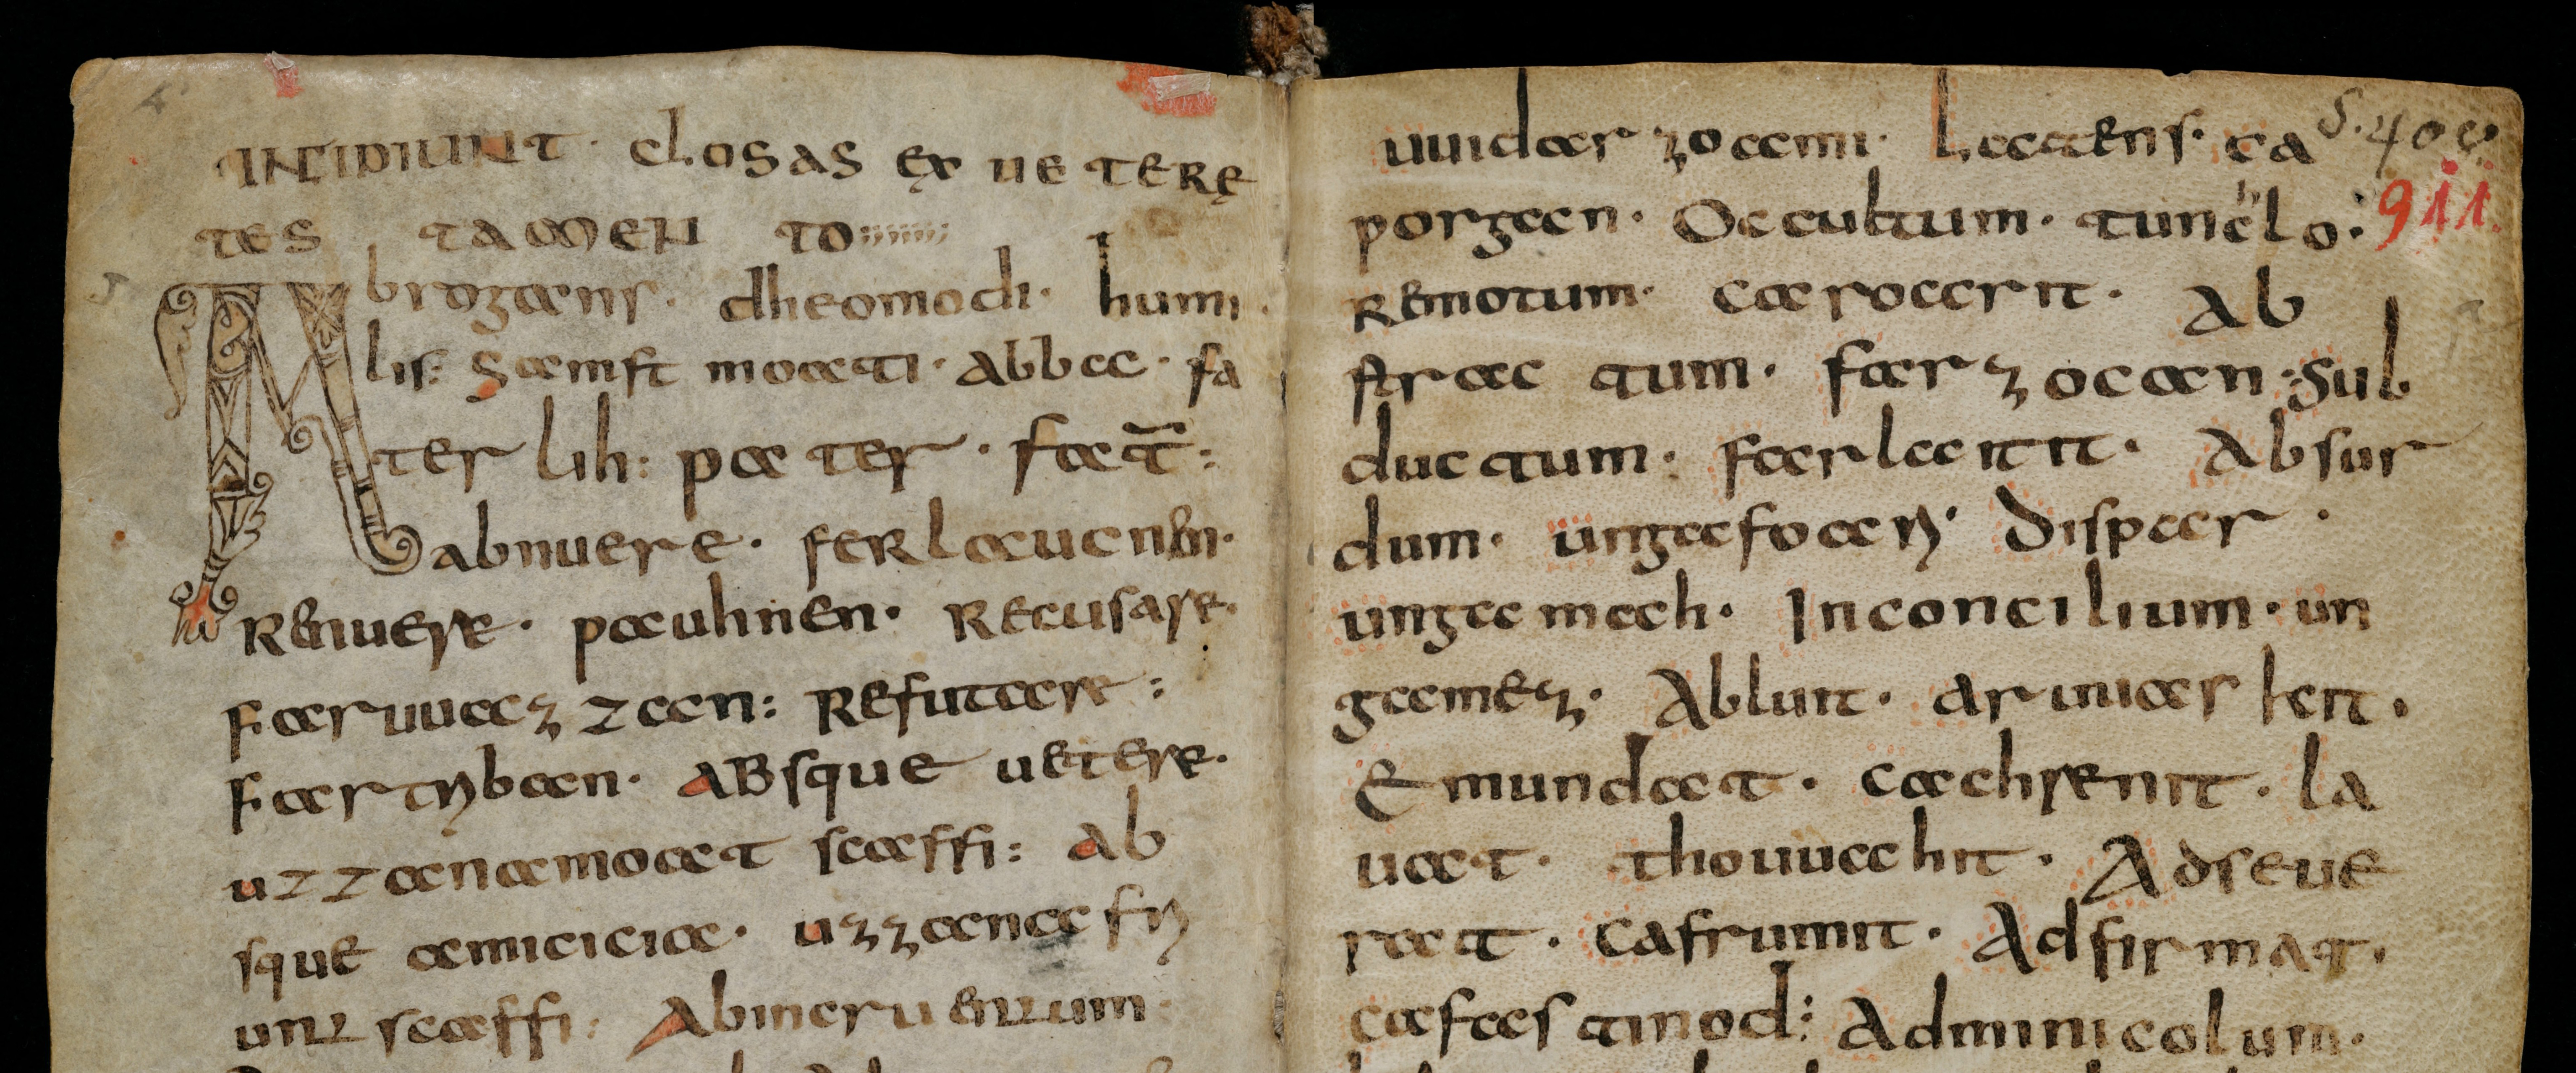 INCIPIUNT · CLOSAS EX UETERE
TES TAMEN TO
Abrogans · dheomodi · humi
lis: samft moati · abba · fa
ter lih: pater · fat̄:
abnuere · ferlaucnen ·
Renuere · pauhnen · Recusare ·
faruuazzan: Refutare:
fartriban · ABsque uetere ·
uzzana moat scaffi: Ab
sque amicicia · uzzana fri
unt scaffi: Abineruentum
uuidar zoami · Latens · ca
porgan · Occultum · tunchlo ·
Remotum · carocrit · Ab
strac tum · farzocan: Sub
ductum · farlaitit · Absur
dum · ungafoari · Dispar ·
ungamah · Inconcilium · un
gamez · Abluit · aruuaskit ·
Emundat · cachrenit · la
uat · thouuahit · Adseue
rat · cafrumit · Adfirmat ·
cafastinod: Adminicolum ·
S. 40e
911.